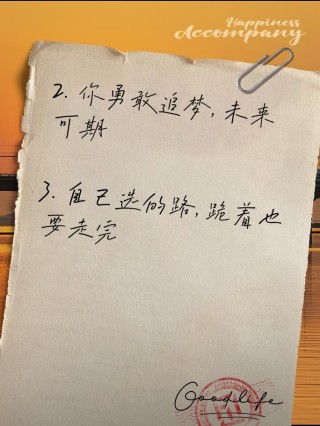 Happiness
Accompany
2. 你勇敢追梦，未来
可期
3. 自己选的路，跪着也
要走完
Goodlife